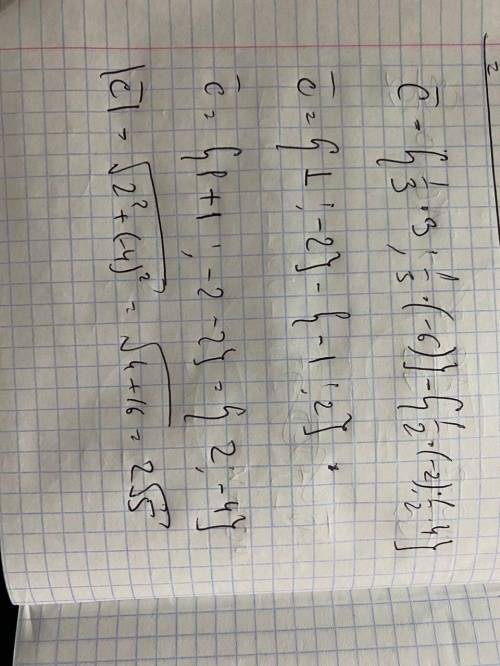 c̄ = {1/3·3; 1/3·(-6)} - {1/2·(-2); 1/2·4}
c̄ = {1; -2} - {-1; 2} =
c̄ = {1+1; -2-2} = {2; -4}
|c̄| = √2²+(-4)² = √4+16 = 2√5